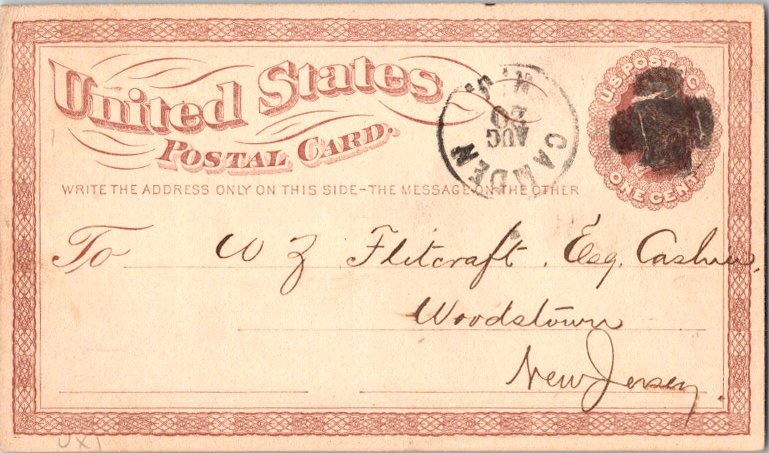 United States
POSTAL CARD.
WRITE THE ADDRESS ONLY ON THIS SIDE-THE MESSAGE ON THE OTHER
CAMDEN
N.J.
AUG
20
U.S. POSTAGE
ONE CENT
To W Z Flitcraft, Esq. Cashier,
Woodstown
New Jersey.
UX1